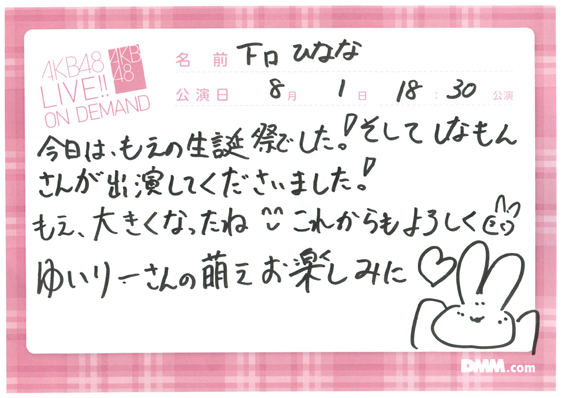 AKB48
LIVE!!
ON DEMAND
AKB
48
名前 下口ひなな
公演日 8月 1日 18:30 公演
今日は、もえの生誕祭でした!そしてしなもん
さんが出演してくださいました!
もえ、大きくなったね これからもよろしく
ゆいりーさんの萌えお楽しみに♡
DMM.com